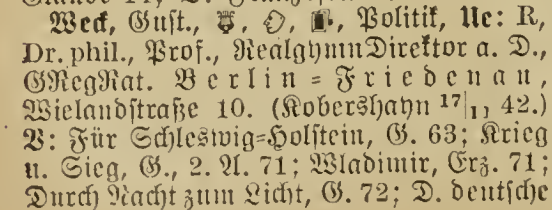 Weck, Gust., Politik, Uc: R,
Dr. phil., Prof., RealgymnDirektor a. D.,
GRegRat. Berlin=Friedenau,
Wielandstraße 10. (Kobershayn 17|1, 42.)
V: Für Schleswig=Holstein, G. 63; Krieg
u. Sieg, G., 2. A. 71; Wladimir, Erz. 71;
Durch Nacht zum Licht, G. 72; D. deutsche